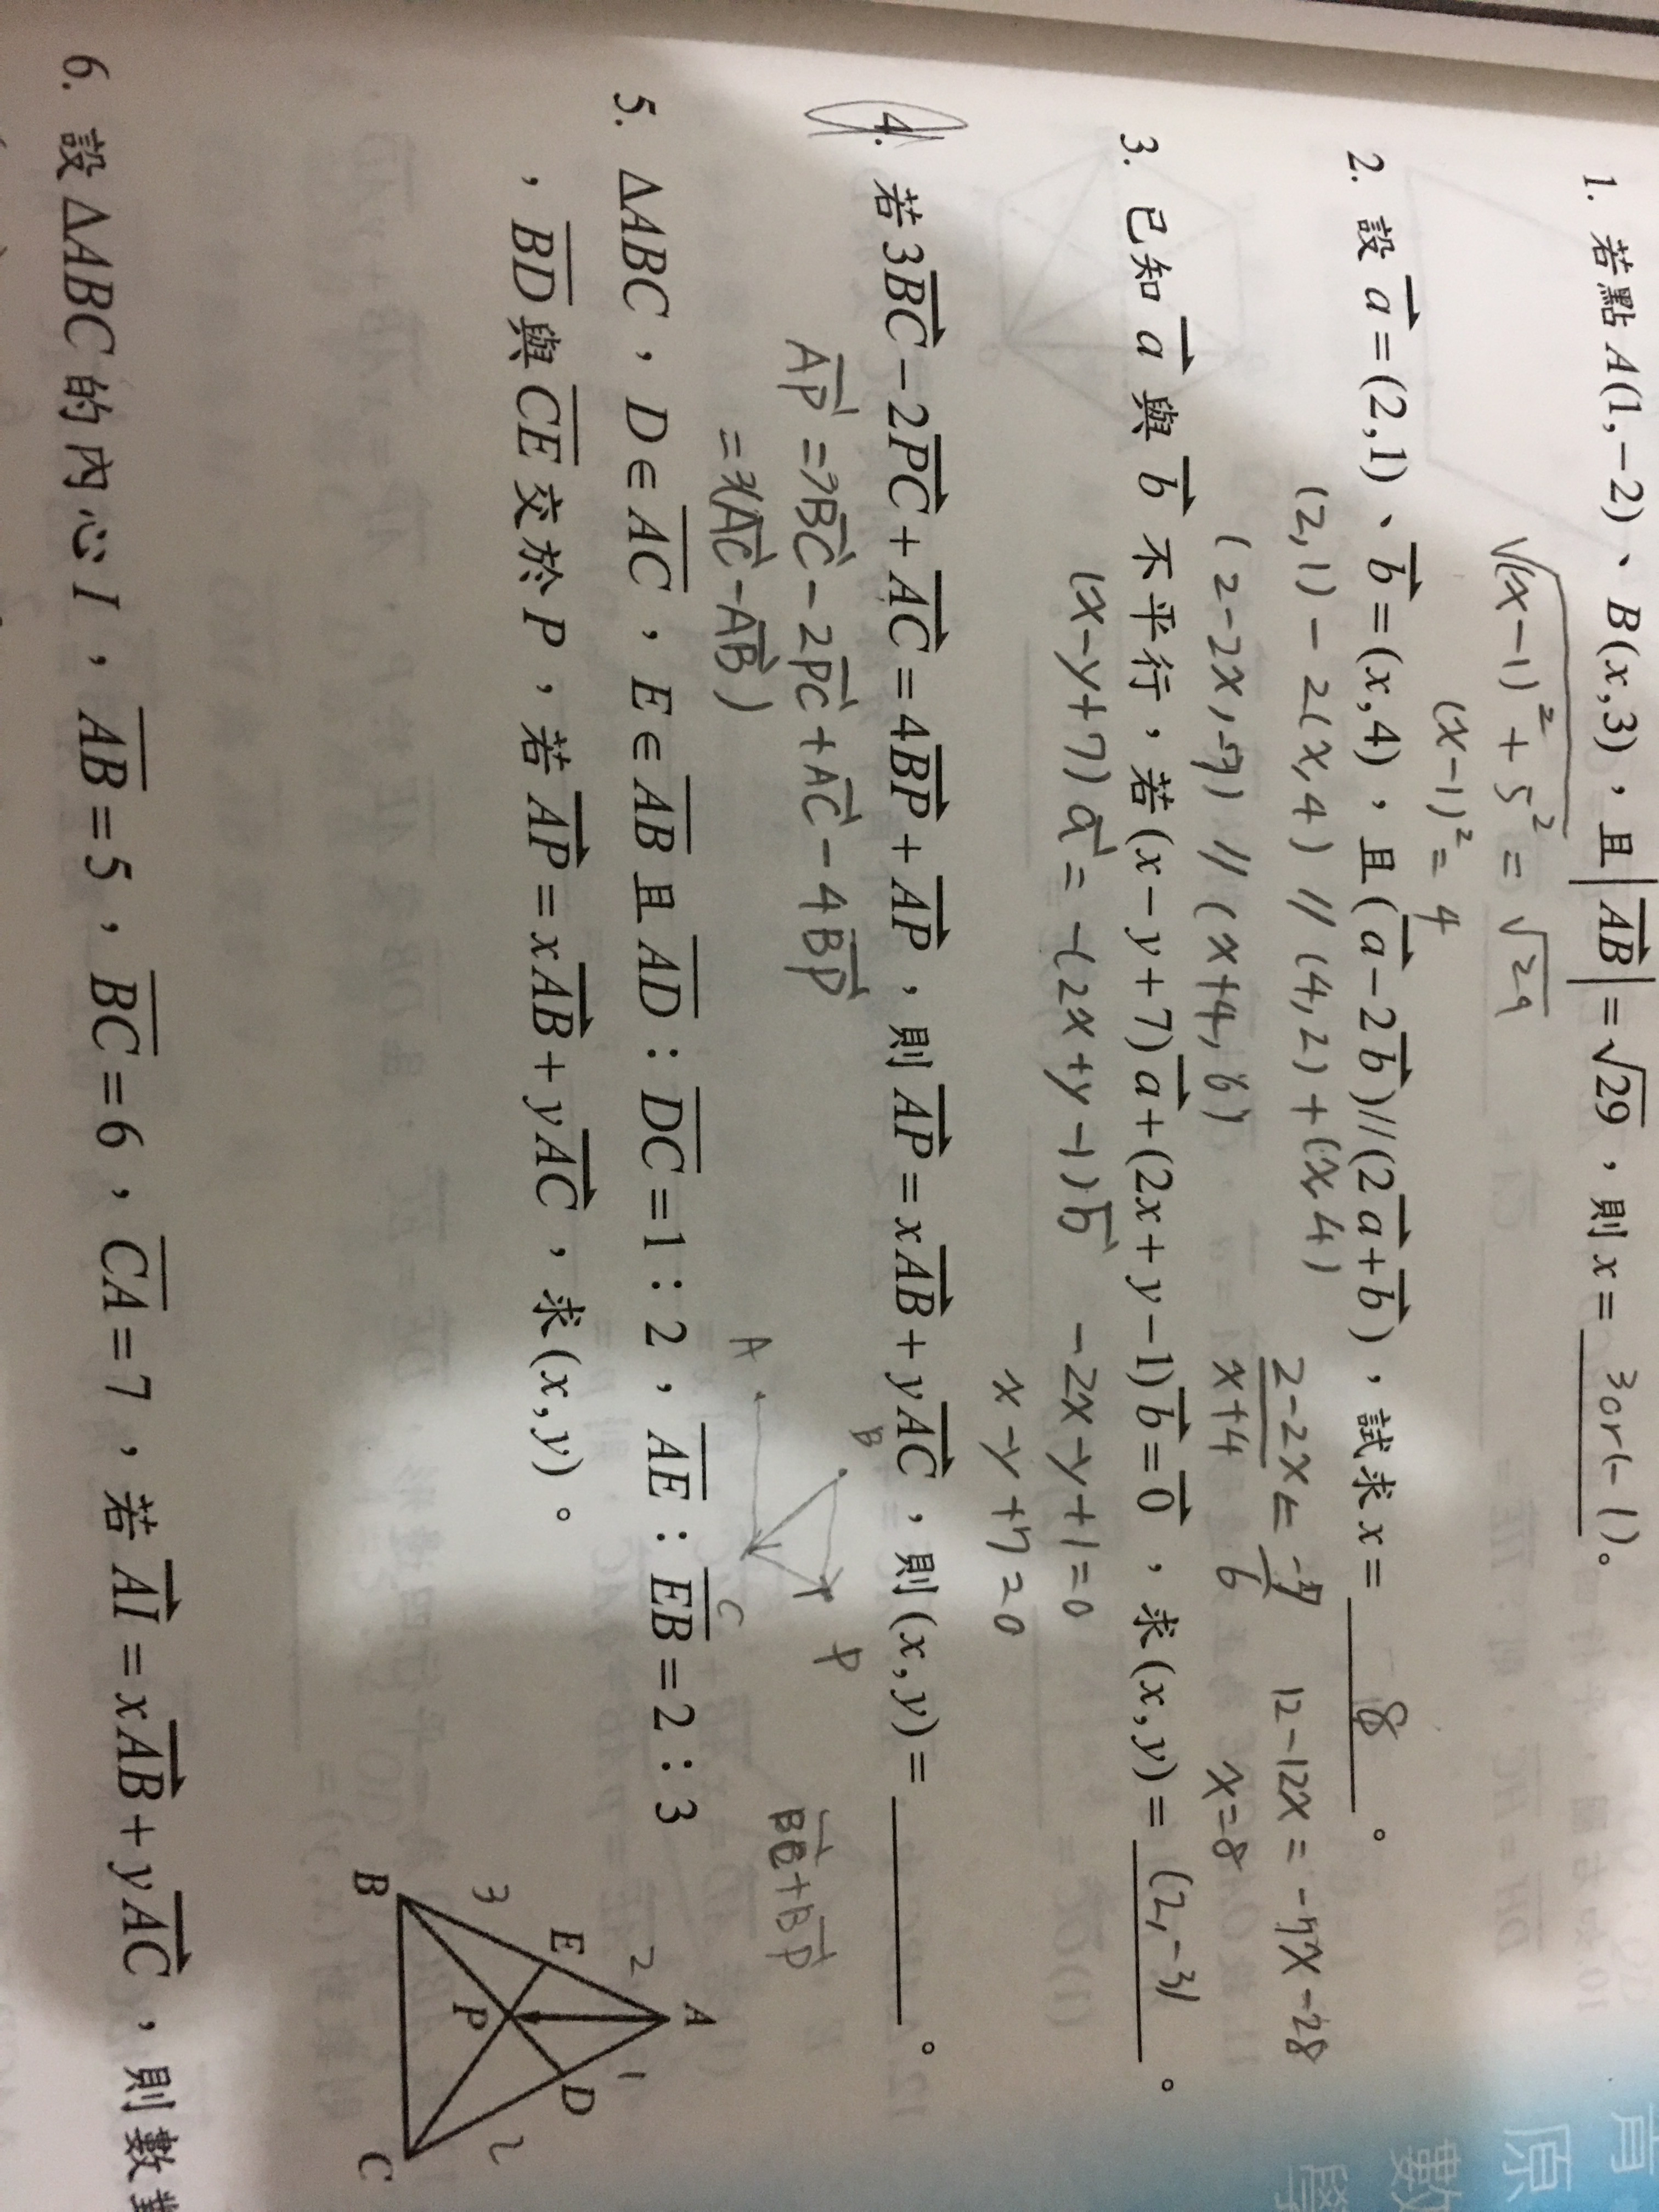 1. 若點A(1,-2)、B(x,3)，且|AB|=√29，則x= 3or(-1)。
√(x-1)²+5² = √29
(x-1)² = 4
2. 設a=(2,1)、b=(x,4)，且(a-2b)//(2a+b)，試求x= 8 。
(2,1)-2(x,4) // (4,2)+(x,4)
(2-2x,-7) // (x+4,6)
2-2x/x+4 = -7/6
12-12x = -7x-28
x=8
3. 已知a與b不平行，若(x-y+7)a+(2x+y-1)b=0，求(x,y)= (2,-3) 。
(x-y+7)a = -(2x+y-1)b
-2x-y+1=0
x-y+7=0
4. 若3BC-2PC+AC=4BP+AP，則AP=xAB+yAC，則(x,y)= 。
AP=3BC-2PC+AC-4BP
=3(AC-AB)
A
B
C
P
BC+BP
5. ΔABC，D∈AC，E∈AB且AD：DC=1：2，AE：EB=2：3
，BD與CE交於P，若AP=xAB+yAC，求(x,y)。
A
2
1
E
D
3
P
2
B
C
6. 設ΔABC的內心I，AB=5，BC=6，CA=7，若AI=xAB+yAC，則數
原
數
學